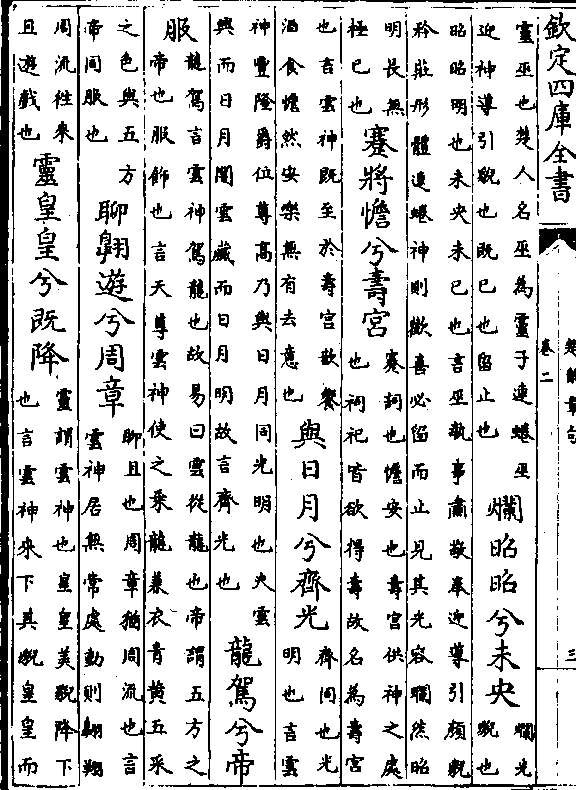 欽定四庫全書
楚辭章句
卷二
三
靈巫也楚人名巫為靈子連蜷巫
迎神導引貌也既已也留止也
爛昭昭兮未央
爛光
貌也
昭昭明也未央未已也言巫執事肅敬奉迎導引顔貌
矜莊形體連蜷神則歡喜必留而止見其光容爛然昭
明長無
極已也
蹇將憺兮壽宮
蹇詞也憺安也壽宮供神之處
也祠祀皆欲得壽故名為壽宮
也言雲神既至於壽宮歆饗
酒食憺然安樂無有去意也
與日月兮齊光
齊同也光
明也言雲
神豐隆爵位尊高乃與日月同光明也夫雲
興而日月闇雲藏而日月明故言齊光也
龍駕兮帝
服
龍駕言雲神駕龍也故易曰雲從龍也帝謂五方之
帝也服飾也言天尊雲神使之乘龍兼衣青黄五采
之色與五方
帝同服也
聊翺遊兮周章
聊且也周章猶周流也言
雲神居無常處動則翺翔
周流徃來
且遊戲也
靈皇皇兮既降
靈謂雲神也皇皇美貌降下
也言雲神來下其貌皇皇而